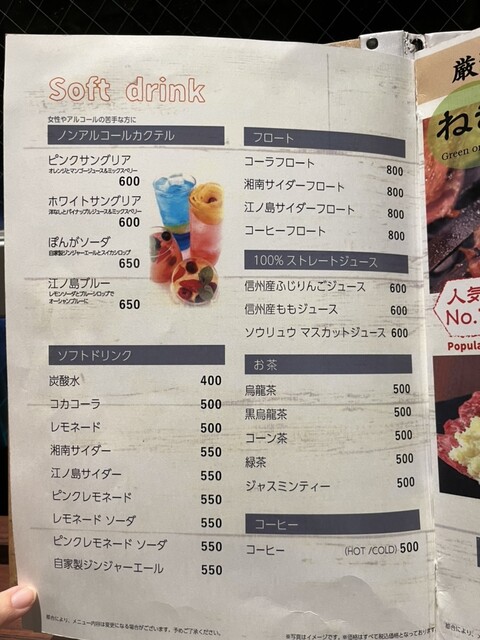 Soft drink
女性やアルコールの苦手な方に
ノンアルコールカクテル
ピンクサングリア
オレンジとマンゴージュース&ミックスベリー
600
ホワイトサングリア
洋なしとパイナップルジュース&ミックスベリー
600
ぽんがソーダ
自家製ジンジャーエールとスイカシロップ
650
江ノ島ブルー
レモンソーダとブルーシロップで
オーシャンブルーに
650
ソフトドリンク
炭酸水 400
コカコーラ 500
レモネード 500
湘南サイダー 550
江ノ島サイダー 550
ピンクレモネード 550
レモネード ソーダ 550
ピンクレモネード ソーダ 550
自家製ジンジャーエール 550
都合により、メニュー内容は変更になる場合がございます。予めご了承ください。
フロート
コーラフロート 800
湘南サイダーフロート 800
江ノ島サイダーフロート 800
コーヒーフロート 800
100%ストレートジュース
信州産ふじりんごジュース 600
信州産ももジュース 600
ソウリュウ マスカットジュース 600
お茶
烏龍茶 500
黒烏龍茶 500
コーン茶 500
緑茶 500
ジャスミンティー 500
コーヒー
コーヒー (HOT /COLD) 500
※写真はイメージです。※価格はすべて税込価格となっております
厳
ね
Green on
人気
No.
Popula
都合により、